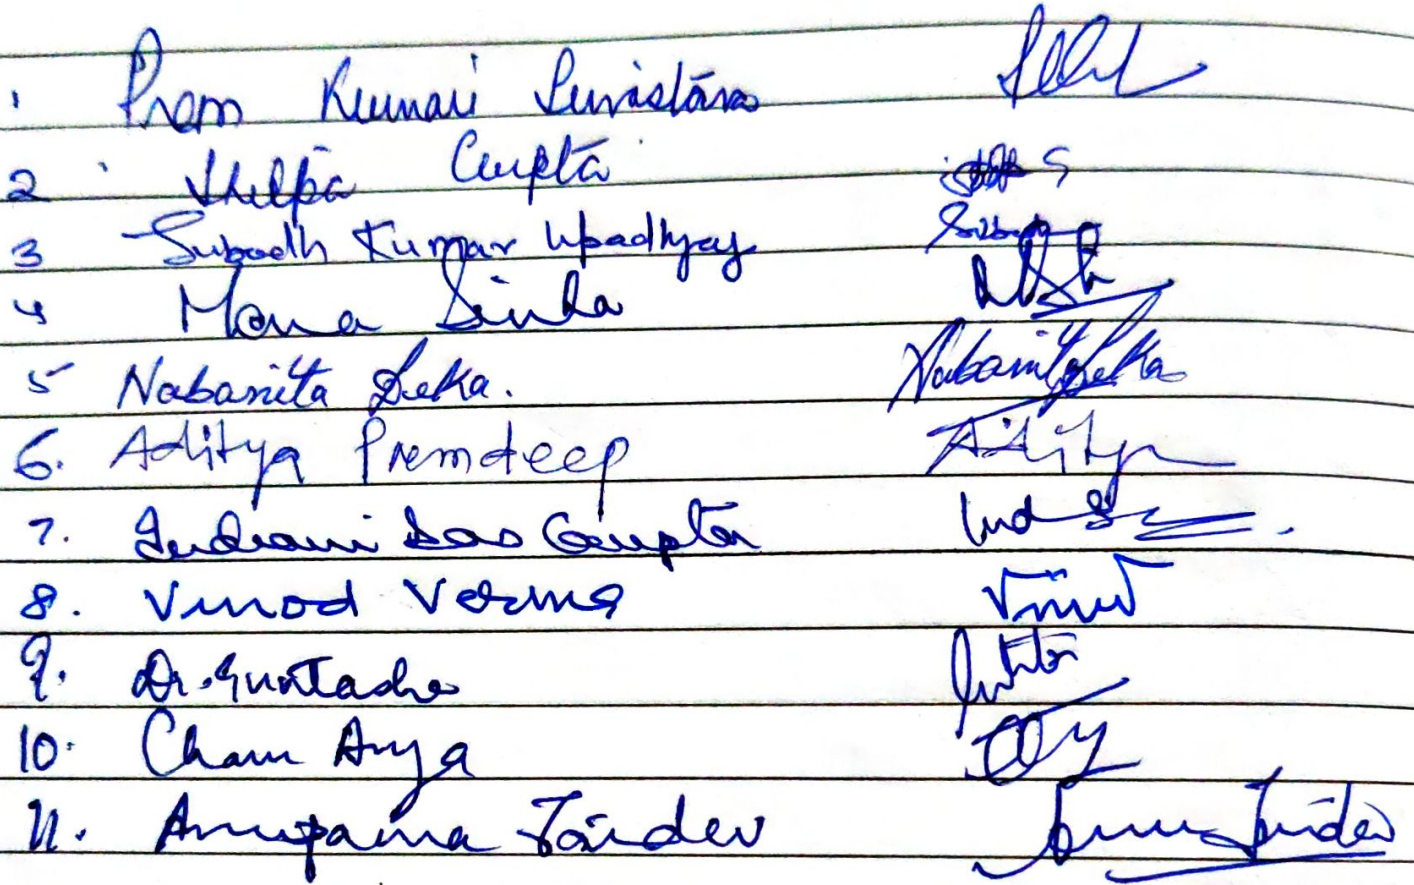 1 Prem Kumari Srivastava
2 Shilpa Gupta
3 Subodh Kumar Upadhyay
4 Mona Sinha
5 Nabanita Deka. Nabanita Deka
6. Aditya Premdeep Aditya
7. Indrani Das Gupta
8. Vinod Verma Vinod
9. Dr.
10. Charu Arya
11. Anupama Jaidev